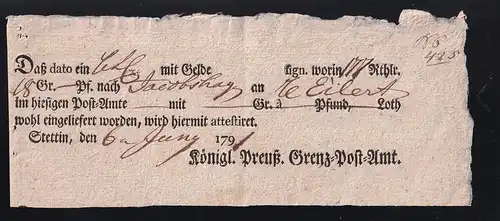 No
425
Daß dato ein mit Gelde sign. worin 177 Rthlr.
18 Gr. — Pf. nach Jacobshag an Eilert
im hiesigen Post-Amte — mit — Gr. à — Pfund, — Loth
wohl eingeliefert worden, wird hiermit attestiret.
Stettin, den 6 Juny 1791
Königl. Preuß. Grenz-Post-Amt.